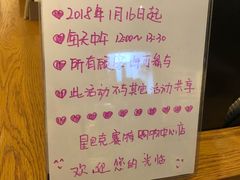 2018年1月16日起
每天中午 12:00～13:30
所有顾客 均可参与
此活动不与其它活动共享
星巴克赛格购物中心店
欢迎您的光临